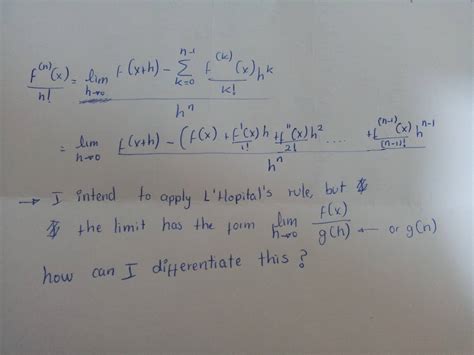 f^(n)(x)/n! = lim h→0 (f(x+h) - Σ k=0 n-1 f^(k)(x)/k! h^k)/h^n
= lim h→0 (f(x+h) - (f(x) + f'(x)h/1! + f''(x)h²/2! ..... + f^(n-1)(x)/(n-1)! h^n-1)/h^n
→ I intend to apply L'Hopital's rule, but
the limit has the form lim h→0 f(x)/g(h) ← or g(n)
how can I differentiate this?